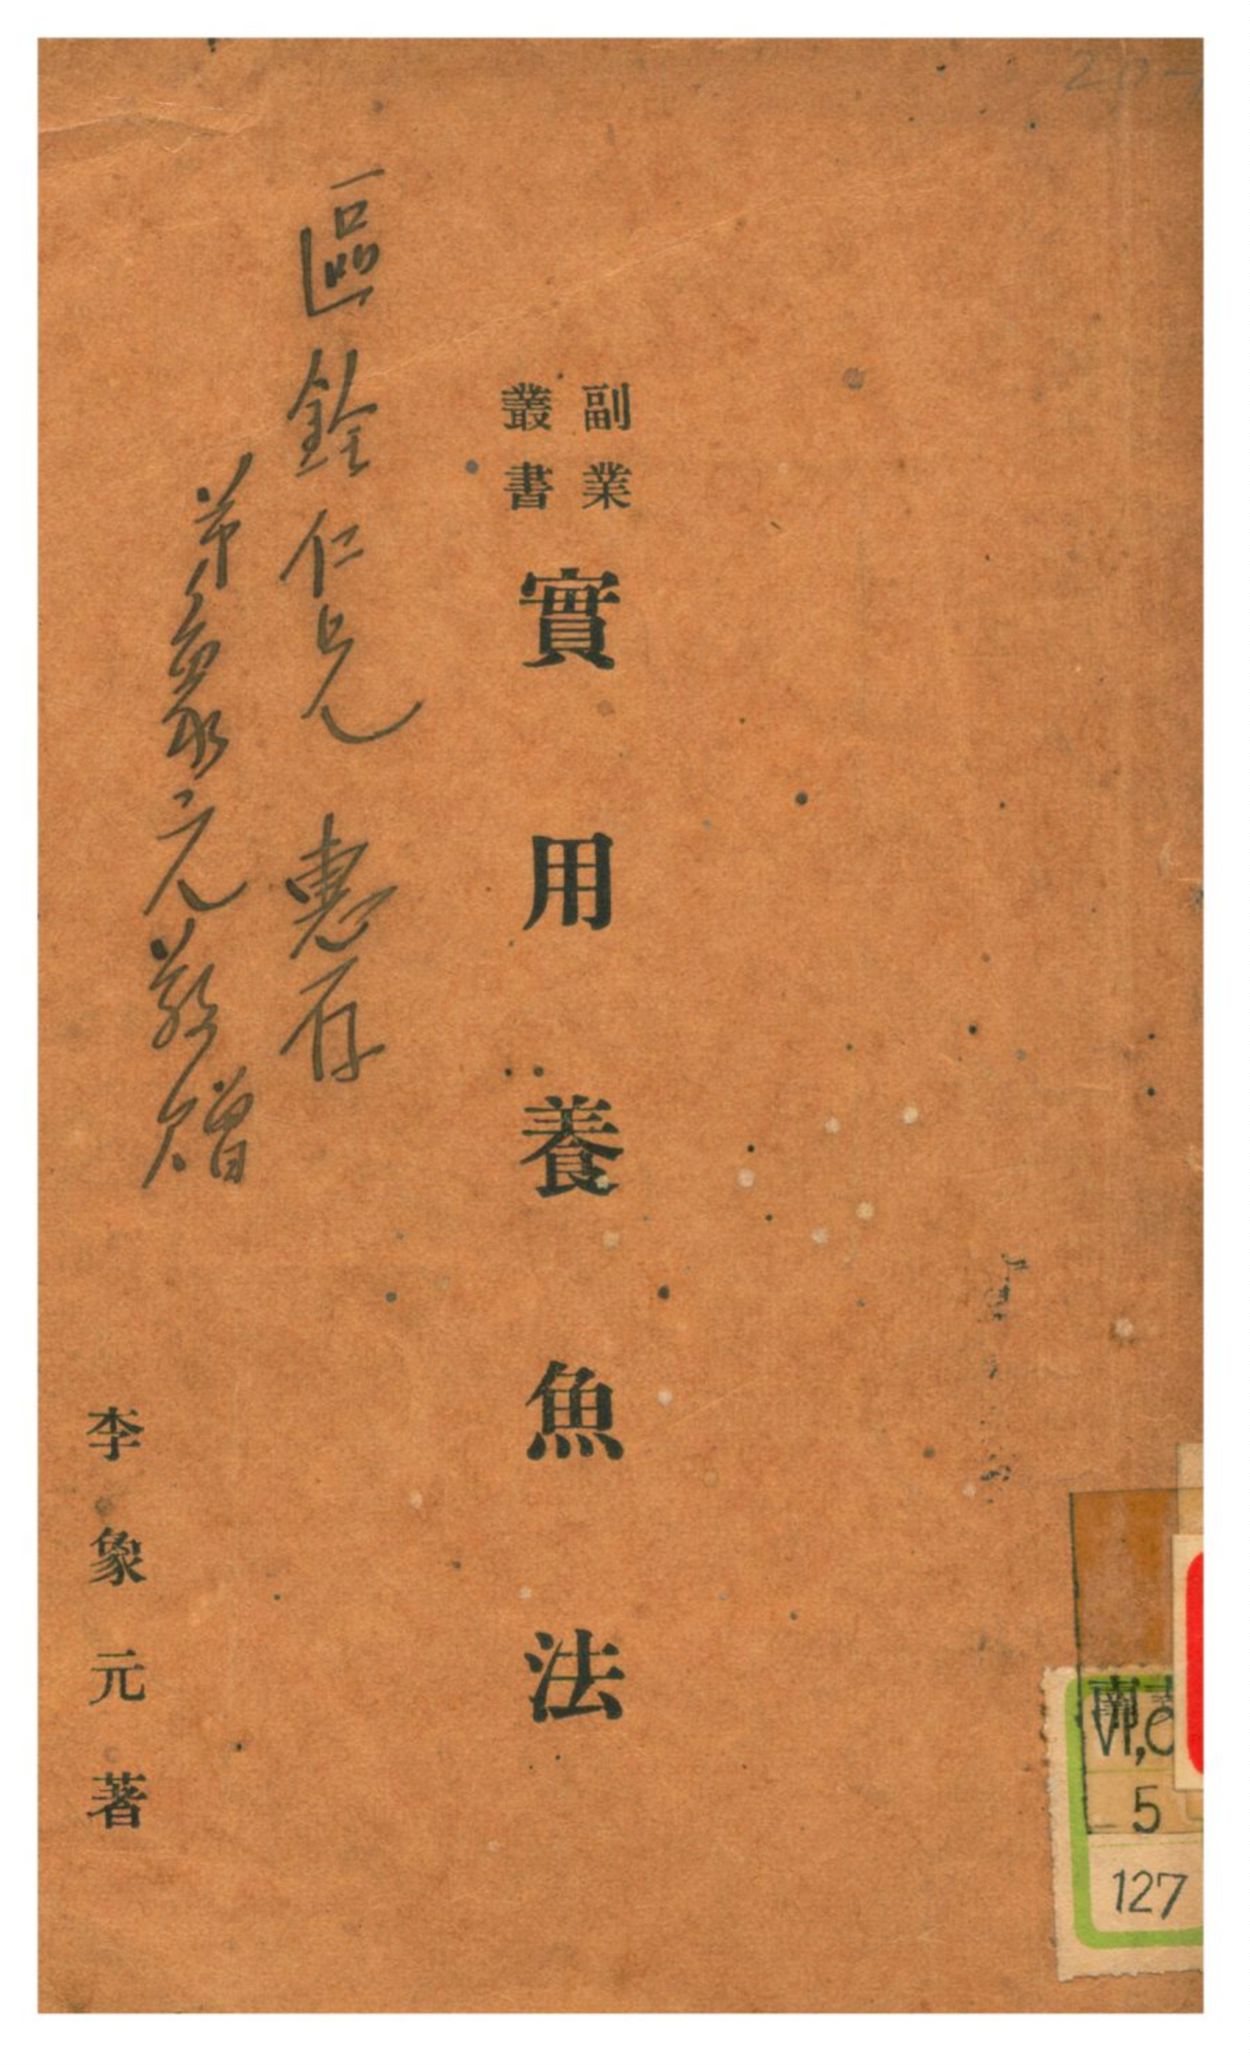 副業
叢書
實用養魚法
區銓仁兄 惠存
弟象元敬贈
李象元著
5
127